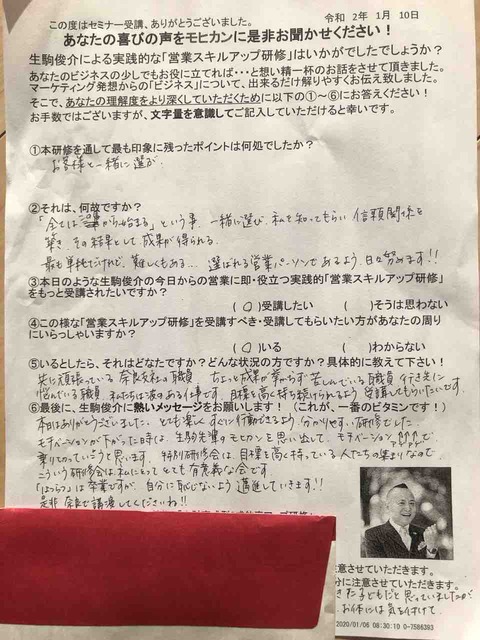 この度はセミナー受講、ありがとうございました。
令和 2年 1月 10日
あなたの喜びの声をモヒカンに是非お聞かせください！
生駒俊介による実践的な「営業スキルアップ研修」はいかがでしたでしょうか？
あなたのビジネスの少しでもお役に立てれば・・・と想い精一杯のお話をさせて頂きました。
マーケティング発想からの「ビジネス」について、出来るだけ解りやすくお伝え致しました。
そこで、あなたの理解度をより深くしていただくために以下の①～⑥にお答えください！
お手数ではございますが、文字量を意識してご記入していただけると幸いです。
①本研修を通して最も印象に残ったポイントは何処でしたか？
お客様と一緒に選ぶ
②それは、何故ですか？
「全ては から始まる」という事 一緒に選び、私を知ってもらい 信頼関係を
築き、その結果として 成果が得られる。
最も単純だけれど、難しくもある… 選ばれる営業パーソンであるよう 日々努めます!!
③本日のような生駒俊介の今日からの営業に即・役立つ実践的「営業スキルアップ研修」
をもっと受講されたいですか？
(○)受講したい ( )そうは思わない
④この様な「営業スキルアップ研修」を受講すべき・受講してもらいたい方があなたの周り
にいらっしゃいますか？
(○)いる ( )わからない
⑤いるとしたら、それはどなたですか？どんな状況の方ですか？具体的に教えて下さい！
共に頑張っている 奈良支社の職員 なかなか成果が挙がらず 苦しんでいる職員 行き先に
悩んでいる職員 私たちは波のある仕事です。目標を高く持ち続けられるよう 受講してもらいたいです。
⑥最後に、生駒俊介に熱いメッセージをお願いします！（これが、一番のビタミンです！）
本日はありがとうございました。とても楽しく すぐに行動できるよう 分かりやすい研修でした
モチベーションが下がった時は、生駒先輩の モヒカンを 思い出して、モチベーション↑↑↑↑で
乗り切っていこうと思います。特別研修会は、目標を高く持っている人たちの集まりなので
こういう研修は私にとって とても 有意義な会です
は卒業ですが、自分に恥じないよう 邁進していきます!!
是非 奈良で講演してくださいね!!
意させていただきます。
分に注意させていただきます。
きた子どもだと思っていましたが
お体には気を付けて
2020/01/06 08:30:19 0-7586393